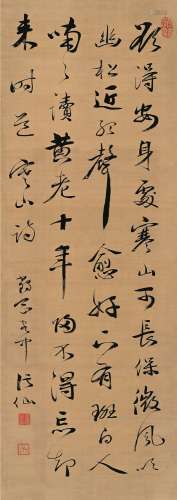 欲得安身處寒山可長保微風吹
幽松近聽聲愈好下有斑白人
喃々讀黃老十年歸不得忘却
來時道 寒山詩